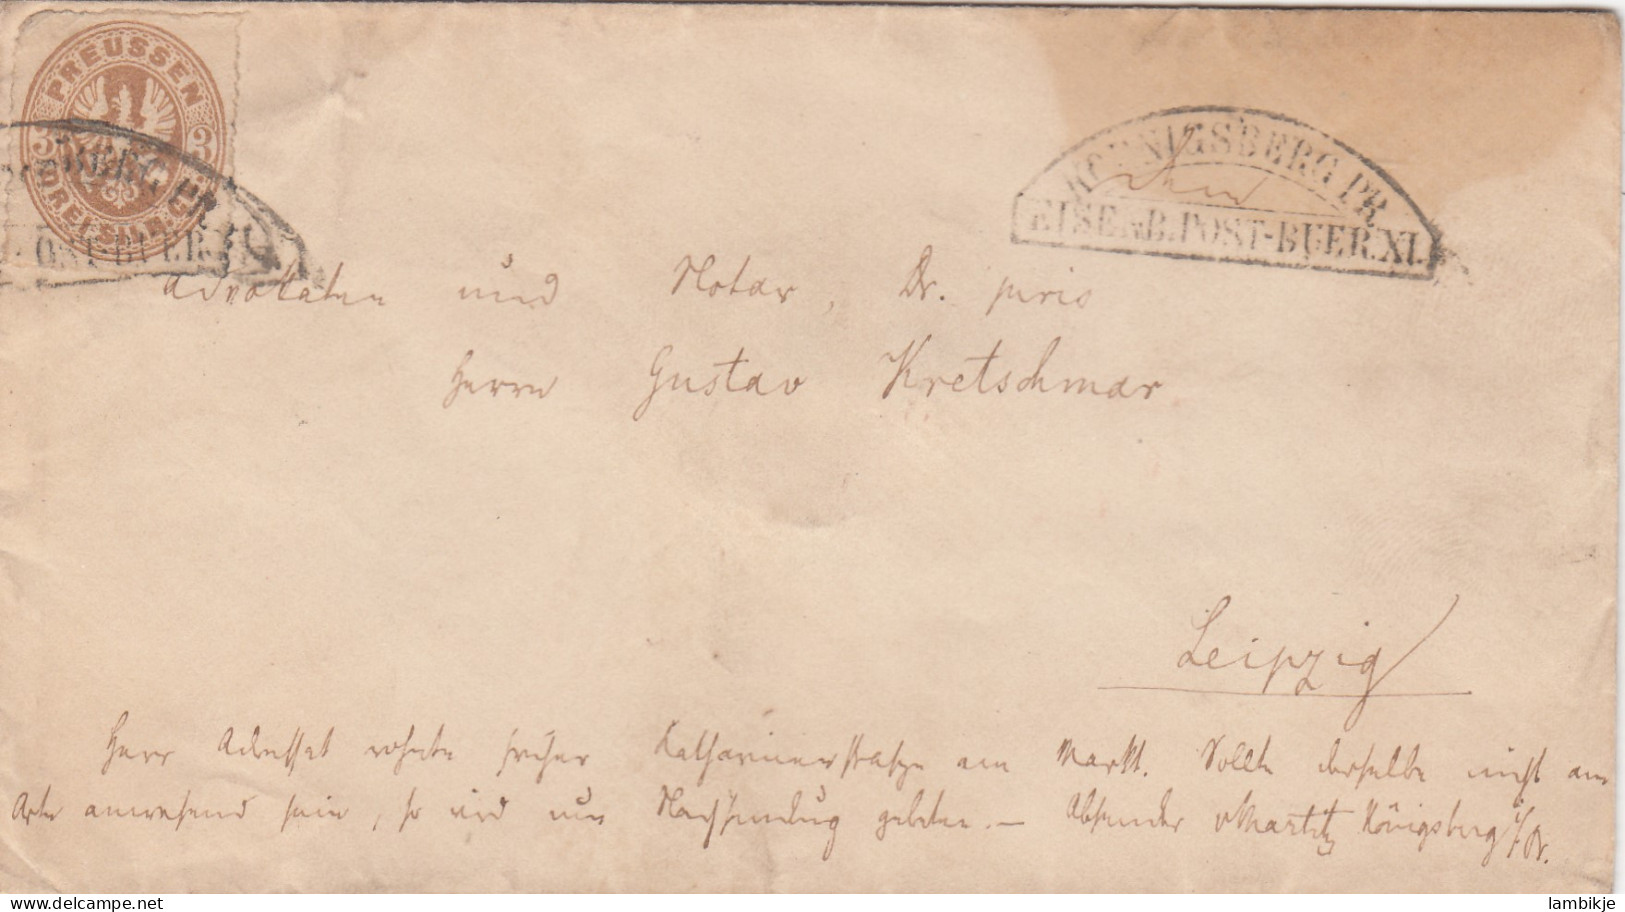 PREUSSEN
3 3
DREI SILB. G.
BERG PR
OST-BUER.
KOENIGSBERG PR.
EISENB. POST-BUER. XI.
Advokaten und Notar, Dr. juris
Herrn Gustav Kretschmar
Leipzig
Herr Adressat wohnte früher Katharinenstraße am Markt. Sollte derselbe nicht am
Orte anwesend sein, so wird um Nachsendung gebeten. — Absender vMartitz Königsberg i/Pr.
delcampe.net
lambikje